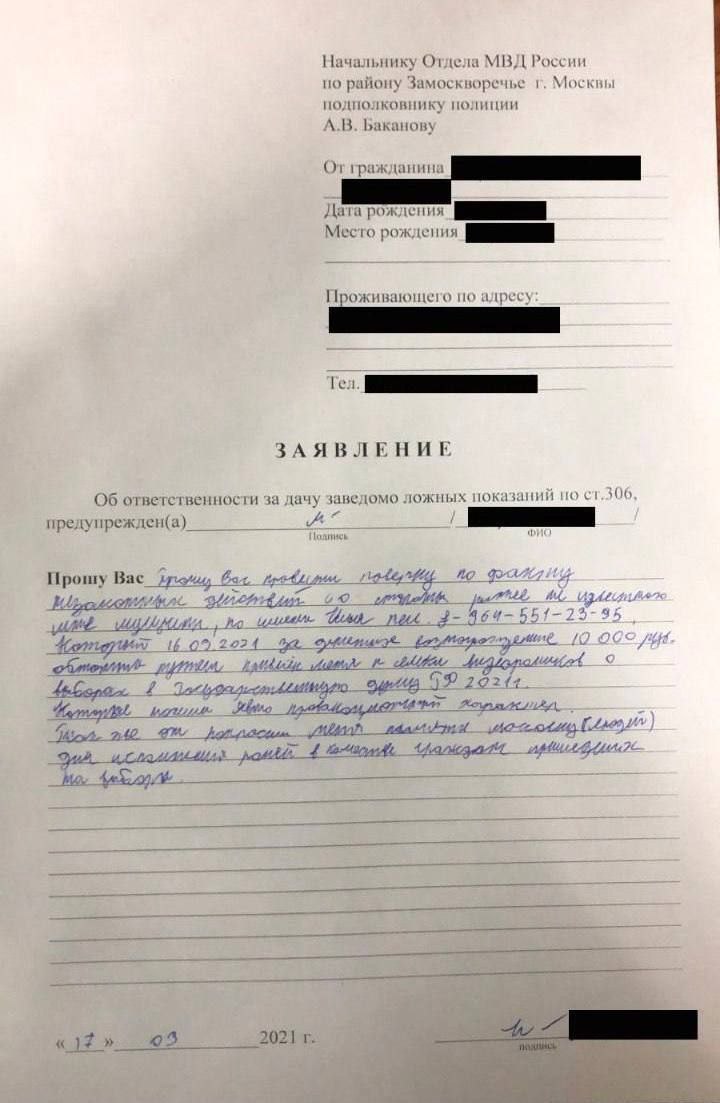 Начальнику Отдела МВД России
по району Замоскворечье г. Москвы
подполковнику полиции
А.В. Баканову
От гражданина
Дата рождения
Место рождения
Проживающего по адресу:
Тел.
ЗАЯВЛЕНИЕ
Об ответственности за дачу заведомо ложных показаний по ст.306,
предупрежден(а) / /
Подпись ФИО
Прошу Вас Прошу Вас провести поверку по факту
незаконных действий со стороны ранее не известного
мне мужчины, по имени Илья тел. 8-964-551-23-95,
который 16.09.2021 за денежное вознаграждение 10 000 руб.
путем меня к съемки видеороликов о
выборах в Государственную думу РФ 2021г.
Которые явно провокационный характер.
Так же он попросил меня массовку (людей)
для исполнения ролей в качестве граждан пришедших
на выборы.
«17» 09 2021 г.
подпись